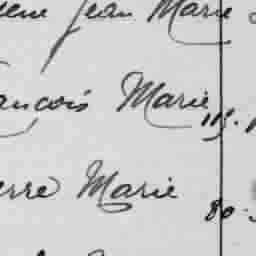 Jean Marie
ançois Marie
113.
erre Marie
80.